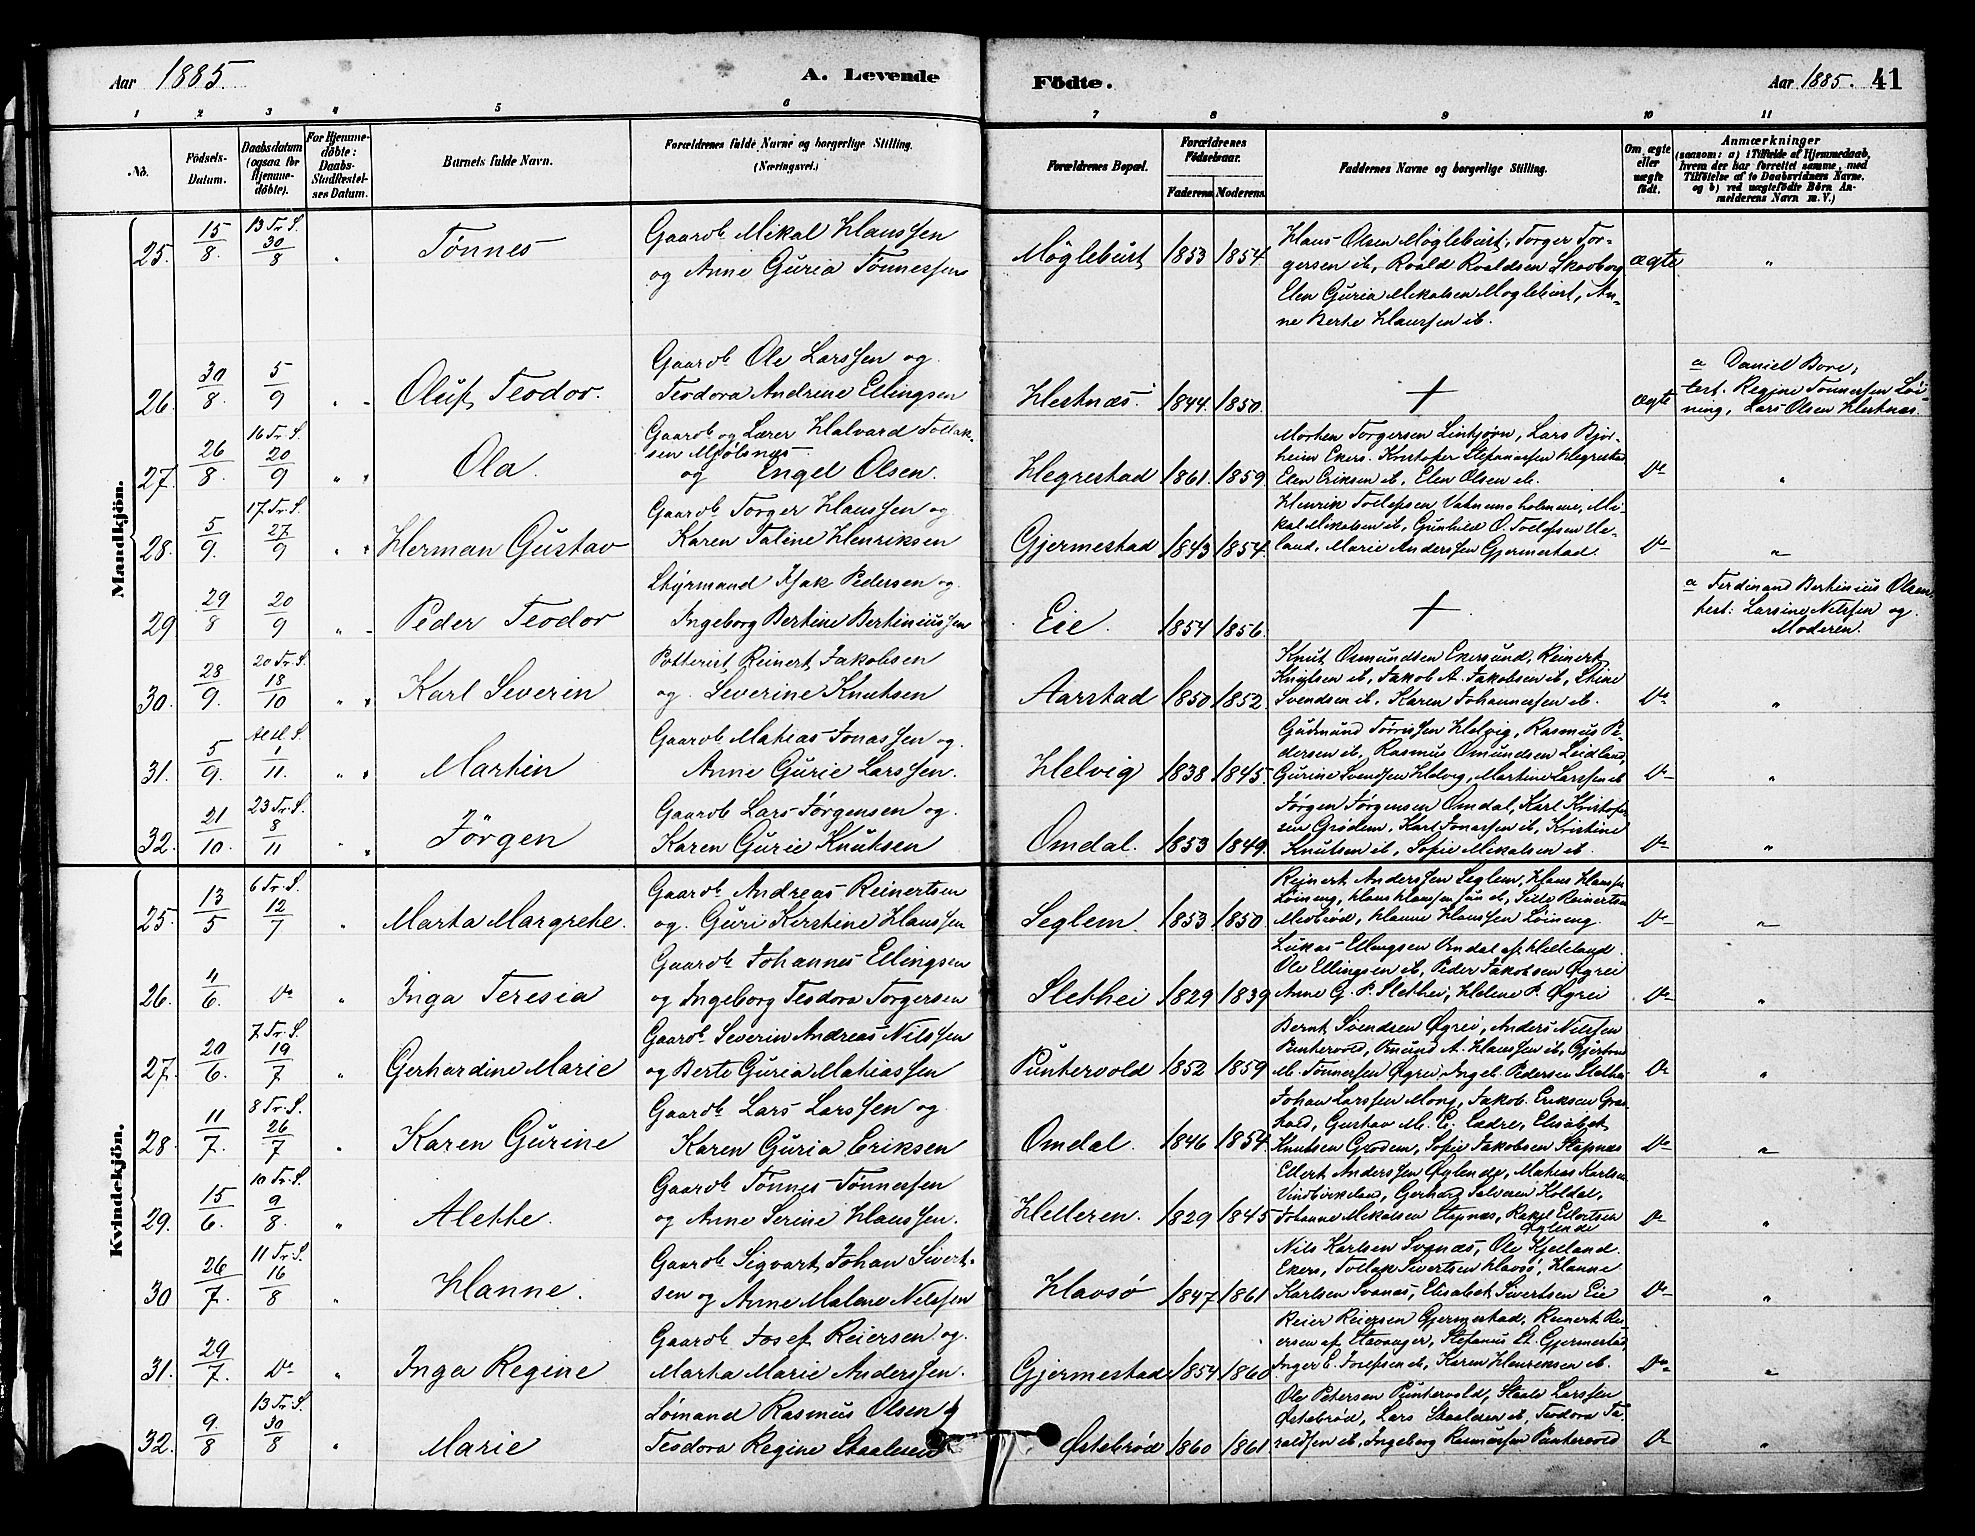 Aar 1885.
A. Levende
Födte.
Aar 1885. 41
1 2 3 4 5 6 7 8 9 10 11
No.
Födsels-Datum.
Daabsdatum (ogsaa for Hjemmedöbte).
For Hjemmedöbte: Daabs-Stadfæstelses Datum.
Barnets fulde Navn.
Forældrenes fulde Navne og borgerlige Stilling. (Næringsvei.)
Forældrenes Bopæl.
Forældrenes Födselsaar.
Faderens Moderens
Faddernes Navne og borgerlige Stilling.
Om ægte eller uægte födt.
Anmærkninger
(saasom: a) i Tilfælde af Hjemmedaab, hvem der har forrettet samme, med Tilföielse af to Daabsvidners Navne, og b) ved uægtefödte Börn Anmelderens Navn m. V.)
Mandkjön.
25. 15/8 13 Tr. S. 30/8 " Tønnes
Gaardb Mikal Hanssen
og Anne Guria Tønnessen
Mögleburt 1853 1854
Hans Olsen Mögleburt, Torger Tor-
gersen ib, Roald Roaldsen Skadberg
Elen Guria Mikalsen Mögleburt, An-
ne Berte Hanssen ib.
Ægte "
26. 30/8 5/9 " Oluf Teodor.
Gaardb Ole Larssen og
Teodora Andrine Ellingsen
Hestnæs 1844. 1850. + Ægte
a Daniel Bore,
test. Regine Tønnessen Löi-
ning, Lars Olsen Hestnæs.
27. 26/8 16 Tr. S. 20/9 " Ola.
Gaardb og Lærer Halvard Tollak-
sen Mjølsnæs
og Engel Olsen.
Hegrestad 1861. 1859.
Morten Torgersen Linhjørn, Lars Bjor-
heim Ekers. Kristofer Stefanussen Hegrestad
Elen Eriksen ib, Elen Olsen ib.
Do "
28. 5/9. 17. Tr. S. 27/9 " Herman Gustav
Gaardb Torger Hanssen og
Karen Taline Henriksen
Gjermestad 1843 1854.
Henrik Tollefsen Vatnemoholmene, Mi-
kal Mikalsen ib, Gunhild O. Tollefsen He-
land, Marie Anderssen Gjermestad.
Do "
29 29/8 20/9 " Peder Teodor
Styrmand Isak Pedersen og
Ingeborg Bertine Bertiniussen
Eie. 1854 1856. +
a Ferdinand Bertinius Olsen,
test: Larsine Nilssen og
Moderen.
30. 28/9. 20 Tr. S. 18/10 " Karl Severin
Potterist Reinert Jakobsen
og Severine Knutsen
Aarstad 1850 1852.
Knut Osmundsen Ekersund, Reinert
Knutsen ib, Jakob A. Jakobsen ib, Stine
Svendsen ib, Karen Johannessen ib.
Do "
31. 5/9. 1/11. " Martin
Gaardb Matias Jonassen og
Anne Gurie Larssen.
Helvig 1838 1845.
Gudmund Tørrissen Helvig, Rasmus Pe-
dersen ib, Rasmus Omundsen Leidland,
Gurine Svendsen Helvig, Martine Larssen ib
Do "
32. 21/10. 23 Tr. S. 8/11 " Jörgen
Gaardb Lars Jørgensen og
Karen Gurie Knutsen
Omdal. 1853 1849.
Jørgen Jørgensen Omdal, Karl Kristofer-
sen Grødem, Karl Jonassen ib, Kristine
Knutsen ib, Sofie Mikalsen ib.
Do "
Kvindekjön.
25. 13/5 6 Tr. S. 12/7 " Marta Margrete.
Gaardb Andreas Reinertsen
og Guri Kirstine Hanssen
Seglem. 1853 1850.
Reinert Anderssen Seglem, Hans Hanssen
Løining, Hans Hanssen jun ib, Sille Reinertsen
Medbrød, Hanne Hanssen Løining.
Do "
26. 4/6. Do " Inga Teresia
Gaardb Johannes Ellingsen
og Ingeborg Teodora Torgersen
Slethei 1829 1839
Lukas Ellingsen Omdal af Helleland.
Ole Ellingsen ib, Peder Jakobsen Øgrei
Anne G. P. Slethei, Helene P. Øgrei
Do "
27. 20/6. 7 Tr. S. 19/7 " Gerhardine Marie
Gaardb Severin Andreas Nilssen
og Berte Guria Matiassen
Puntervold 1852 1859
Bernt Svendsen Øgrei, Anders Nilssen
Puntervold, Omund A. Hanssen ib,
M. Tønnessen Øgrei, Ingeb. Pedersen Slethei
Do "
28. 11/7. 8 Tr. S. 26/7 " Karen Gurine
Gaardb Lars Larssen og
Karen Guria Eriksen
Omdal. 1846 1854.
Johan Larssen Mong, Jakob Eriksen
Gustav M. Lædre, Elisabet
Knutsen Grødem, Sofie Jakobsen Stapnæs
Do "
29. 15/6. 10 Tr. S. 9/8. " Alette.
Gaardb Tønnes Tønnessen
og Anne Serine Hanssen.
Helleren. 1829 1845
Ellert Anderssen Øglende, Matias Karlsen
Vindbirkeland, Gerhard Salvesen Koldal,
Johanne Mikalsen Stapnæs, Rakel Ellertsen
Øglende
Do "
30 26/7. 11 Tr. S. 16/8 " Hanne.
Gaardb Sigvart Johan Sivert-
sen og Anne Malene Nilssen
Havsø 1847 1861
Nils Karlsen Svanæs, Ole Kjelland.
Ekers, Tollak Sivertsen Havsø, Hanne
Karlsen Svanæs, Elisabet Sivertsen Eie
Do "
31. 29/7. Do " Inga Regine
Gaardb Josef Reiersen og
Marta Marie Anderssen.
Gjermestad 1854 1860
Reier Reiersen Gjermestad, Reinert Rei-
ersen af Stavanger, Stefanus St. Gjermestad,
Inger E. Josefsen ib, Karen Henriksen ib.
Do "
32. 9/8 13 Tr. S. 30/8 " Marie
Sömand Rasmus Olsen og
Teodora Regine Staalesen
Østebrød 1860 1861
Ole Petersen Puntervold, Staale Larssen
Østebrød, Lars Staalesen ib, Teodora Ta-
raldsen ib, Ingeborg Rasmussen Puntervold
Do "